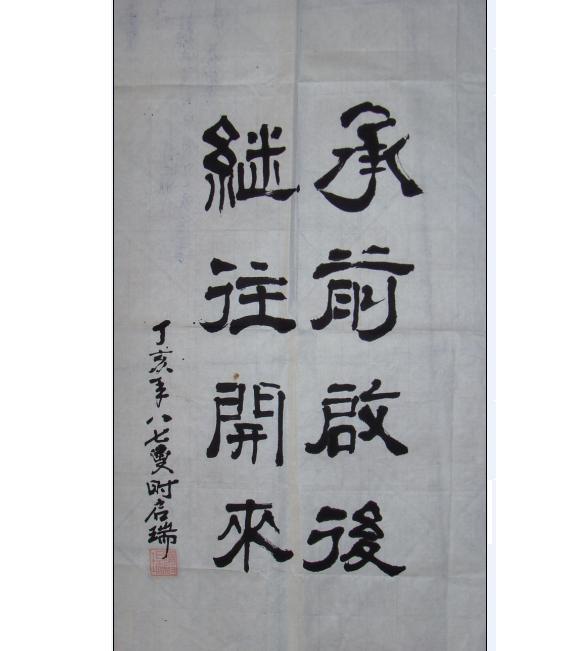 承前啟後
継往開來
丁亥年八七叟时启瑞